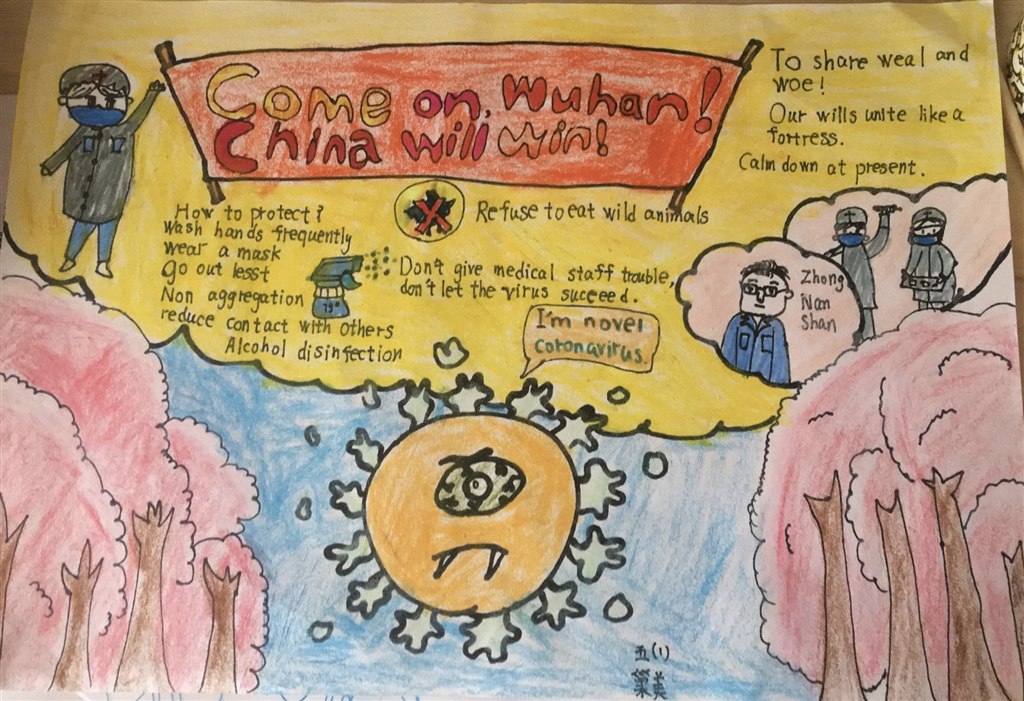 Come on, Wuhan!
China will win!
To share weal and
woe!
Our wills unite like a
fortress.
Calm down at present.
How to protect?
Wash hands frequently
wear a mask
go out lesst
Non aggregation
reduce contact with others
Alcohol disinfection
Refuse to eat wild animals
Don't give medical staff trouble,
don't let the virus succeed.
75°
I'm novel
coronavirus.
Zhong
Nan
Shan
五(1)
美